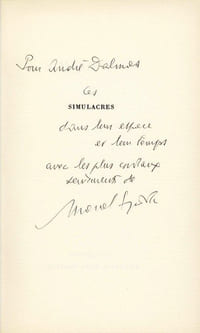 Pour André Dalmas
ces
SIMULACRES
dans leur espace
et leur temps
avec les plus cordiaux
sentiments de